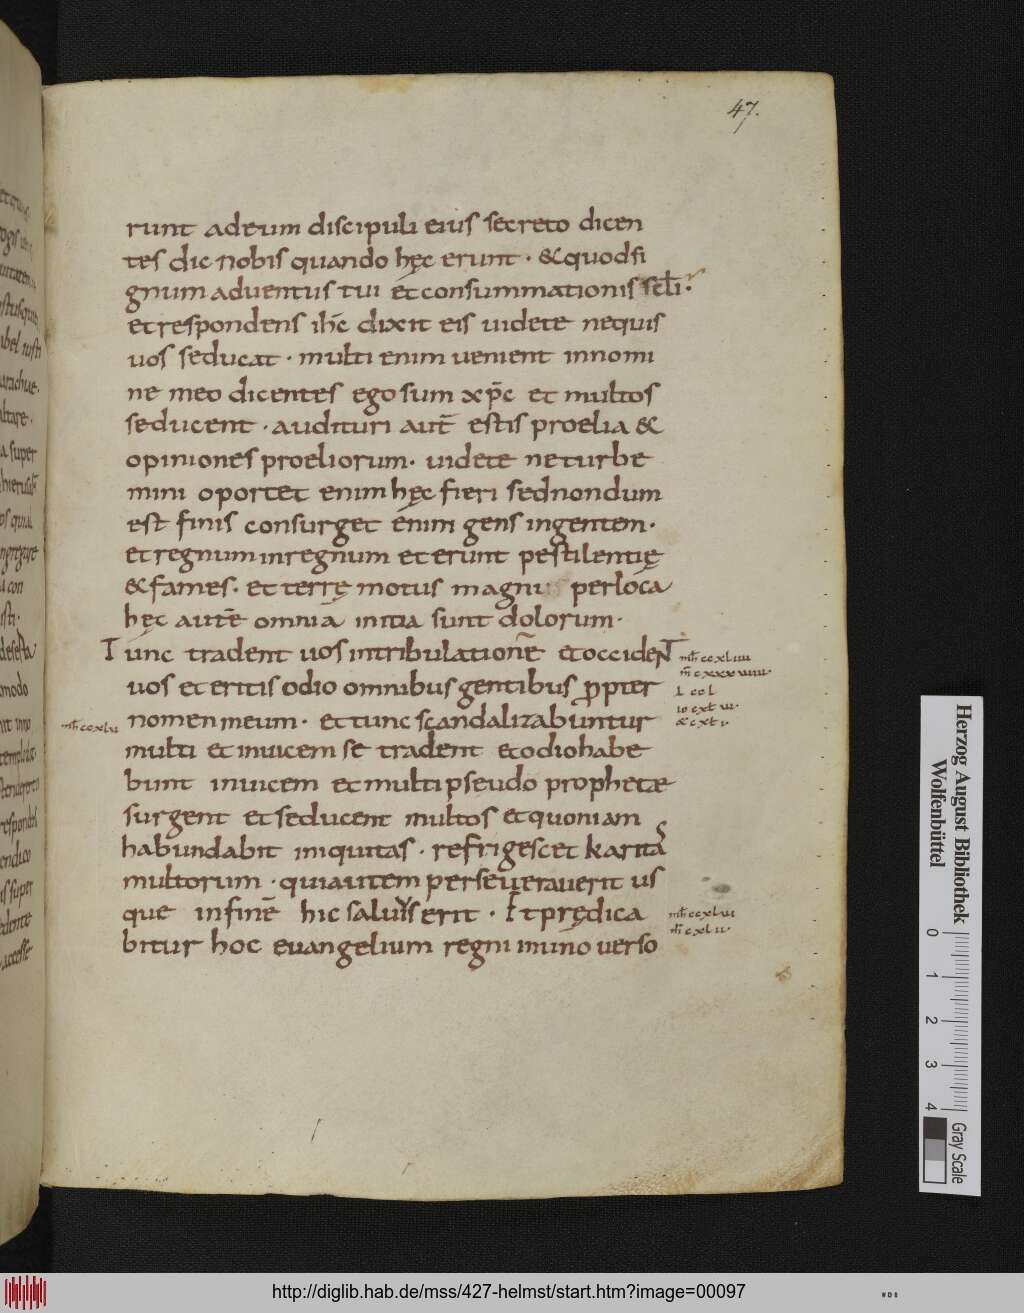 47.
runt adeum discipuli eius secreto dicen
tes dic nobis quando hęc erunt · & quodsi
gnum adventus tui et consummationis scl̄i·
et respondens ih̄c dixit eis uidete nequis
uos seducat · multi enim uenient innomi
ne meo dicentes ego sum xp̄c et multos
seducent · audituri aut̄ estis proelia &
opiniones proeliorum· uidete neturbe
mini oportet enim hęc fieri sednondum
est finis consurget enim gens ingentem·
et regnum inregnum et erunt pestilentię
& fames· et terrę motus magni perloca
hęc autē omnia initia sunt dolorum·
Tunc tradent uos intribulationē et occident
uos et eritis odio omnibus gentibus ꝓpter
nomen meum · et tunc scandalizabuntur
multi et inuicem se tradent et odio habe
bunt inuicem et multi pseudo prophetæ
surgent et seducent multos et quoniam
habundabit iniquitas · refrigescet karitas
multorum · quiautem perseuerauerit us
que infinē hic saluus erit · Et prędica
bitur hoc euangelium regni inuniuerso
Herzog August Bibliothek
Wolfenbüttel
0 1 2 3 4
Gray Scale
http://diglib.hab.de/mss/427-helmst/start.htm?image=00097